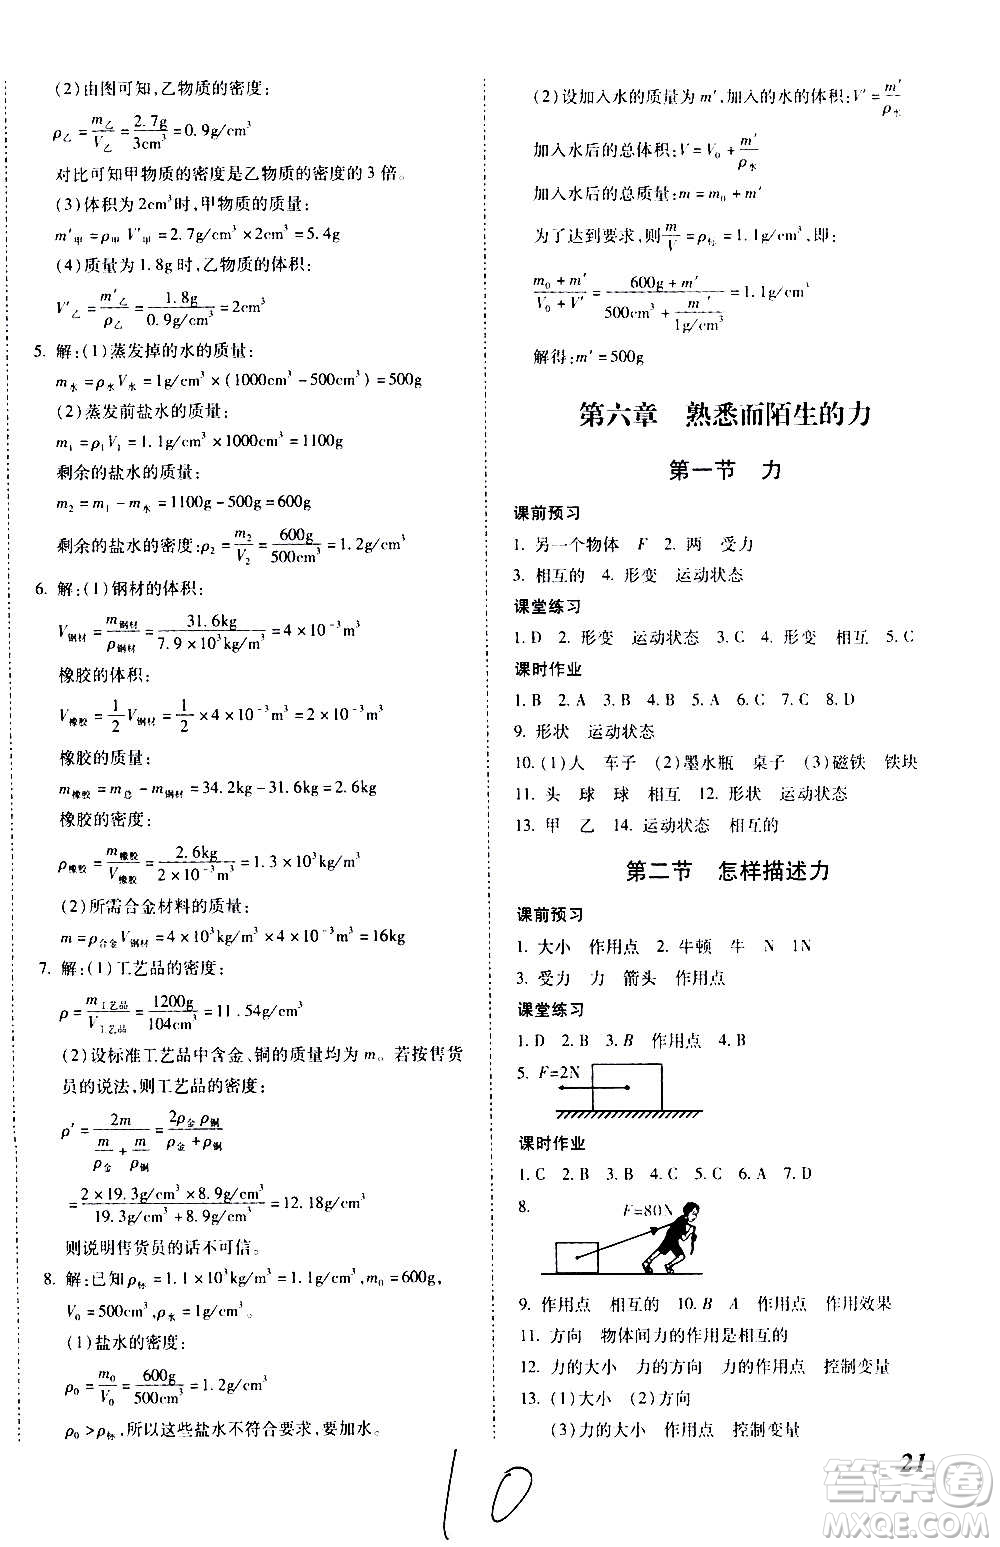 (2)由图可知,乙物质的密度:
ρ乙=m乙/V乙=2.7g/3cm³=0.9g/cm³
对比可知甲物质的密度是乙物质的密度的 3 倍。
(3)体积为2cm³时,甲物质的质量:
m′甲=ρ甲 V′甲=2.7g/cm³×2cm³=5.4g
(4)质量为1.8g时,乙物质的体积:
V′乙=m′乙/ρ乙=1.8g/0.9g/cm³=2cm³
5. 解:(1)蒸发掉的水的质量:
m水=ρ水V水=1g/cm³×(1000cm³-500cm³)=500g
(2)蒸发前盐水的质量:
m₁=ρ₁V₁=1.1g/cm³×1000cm³=1100g
剩余的盐水的质量:
m₂=m₁-m水=1100g-500g=600g
剩余的盐水的密度:ρ₂=m₂/V₂=600g/500cm³=1.2g/cm³
6. 解:(1)钢材的体积:
V钢材=m钢材/ρ钢材=31.6kg/7.9×10³kg/m³=4×10⁻³m³
橡胶的体积:
V橡胶=1/2V钢材=1/2×4×10⁻³m³=2×10⁻³m³
橡胶的质量:
m橡胶=m总-m钢材=34.2kg-31.6kg=2.6kg
橡胶的密度:
ρ橡胶=m橡胶/V橡胶=2.6kg/2×10⁻³m³=1.3×10³kg/m³
(2)所需合金材料的质量:
m=ρ合金V钢材=4×10³kg/m³×4×10⁻³m³=16kg
7. 解:(1)工艺品的密度:
ρ=m工艺品/V工艺品=1200g/104cm³=11.54g/cm³
(2)设标准工艺品中含金、铜的质量均为 m。若按售货
员的说法,则工艺品的密度:
ρ′=2m/(m/ρ金+m/ρ铜)=2ρ金ρ铜/(ρ金+ρ铜)
=2×19.3g/cm³×8.9g/cm³/(19.3g/cm³+8.9g/cm³)=12.18g/cm³
则说明售货员的话不可信。
8. 解:已知ρ标=1.1×10³kg/m³=1.1g/cm³,m₀=600g,
V₀=500cm³,ρ水=1g/cm³。
(1)盐水的密度:
ρ₀=m₀/V₀=600g/500cm³=1.2g/cm³
ρ₀>ρ标,所以这些盐水不符合要求,要加水。
(2)设加入水的质量为 m′,加入的水的体积:V′=m′/ρ水
加入水后的总体积:V=V₀+m′/ρ水
加入水后的总质量:m=m₀+m′
为了达到要求,则m/V=ρ标=1.1g/cm³,即:
(m₀+m′)/(V₀+V′)=(600g+m′)/(500cm³+m′/1g/cm³)=1.1g/cm³
解得:m′=500g
第六章 熟悉而陌生的力
第一节 力
课前预习
1. 另一个物体 F 2. 两 受力
3. 相互的 4. 形变 运动状态
课堂练习
1. D 2. 形变 运动状态 3. C 4. 形变 相互 5. C
课时作业
1. B 2. A 3. B 4. B 5. A 6. B 7. C 8. D
9. 形状 运动状态
10. (1)人 车子 (2)墨水瓶 桌子 (3)磁铁 铁块
11. 头 球 球 相互 12. 形状 运动状态
13. 甲 乙 14. 运动状态 相互的
第二节 怎样描述力
课前预习
1. 大小 作用点 2. 牛顿 牛 N 1N
3. 受力 力 箭头 作用点
课堂练习
1. D 2. D 3. B 作用点 4. A
5. F=2N
课时作业
1. C 2. C 3. B 4. B 5. D 6. A 7. D
8. F=80N
9. 作用点 相互的 10. B A 作用点 作用效果
11. 方向 物体间力的作用是相互的
12. 力的大小 力的方向 力的作用点 控制变量
13. (1)大小 (2)方向
(3)力的大小 作用点 控制变量
21
10
答案圈
MXQE.COM